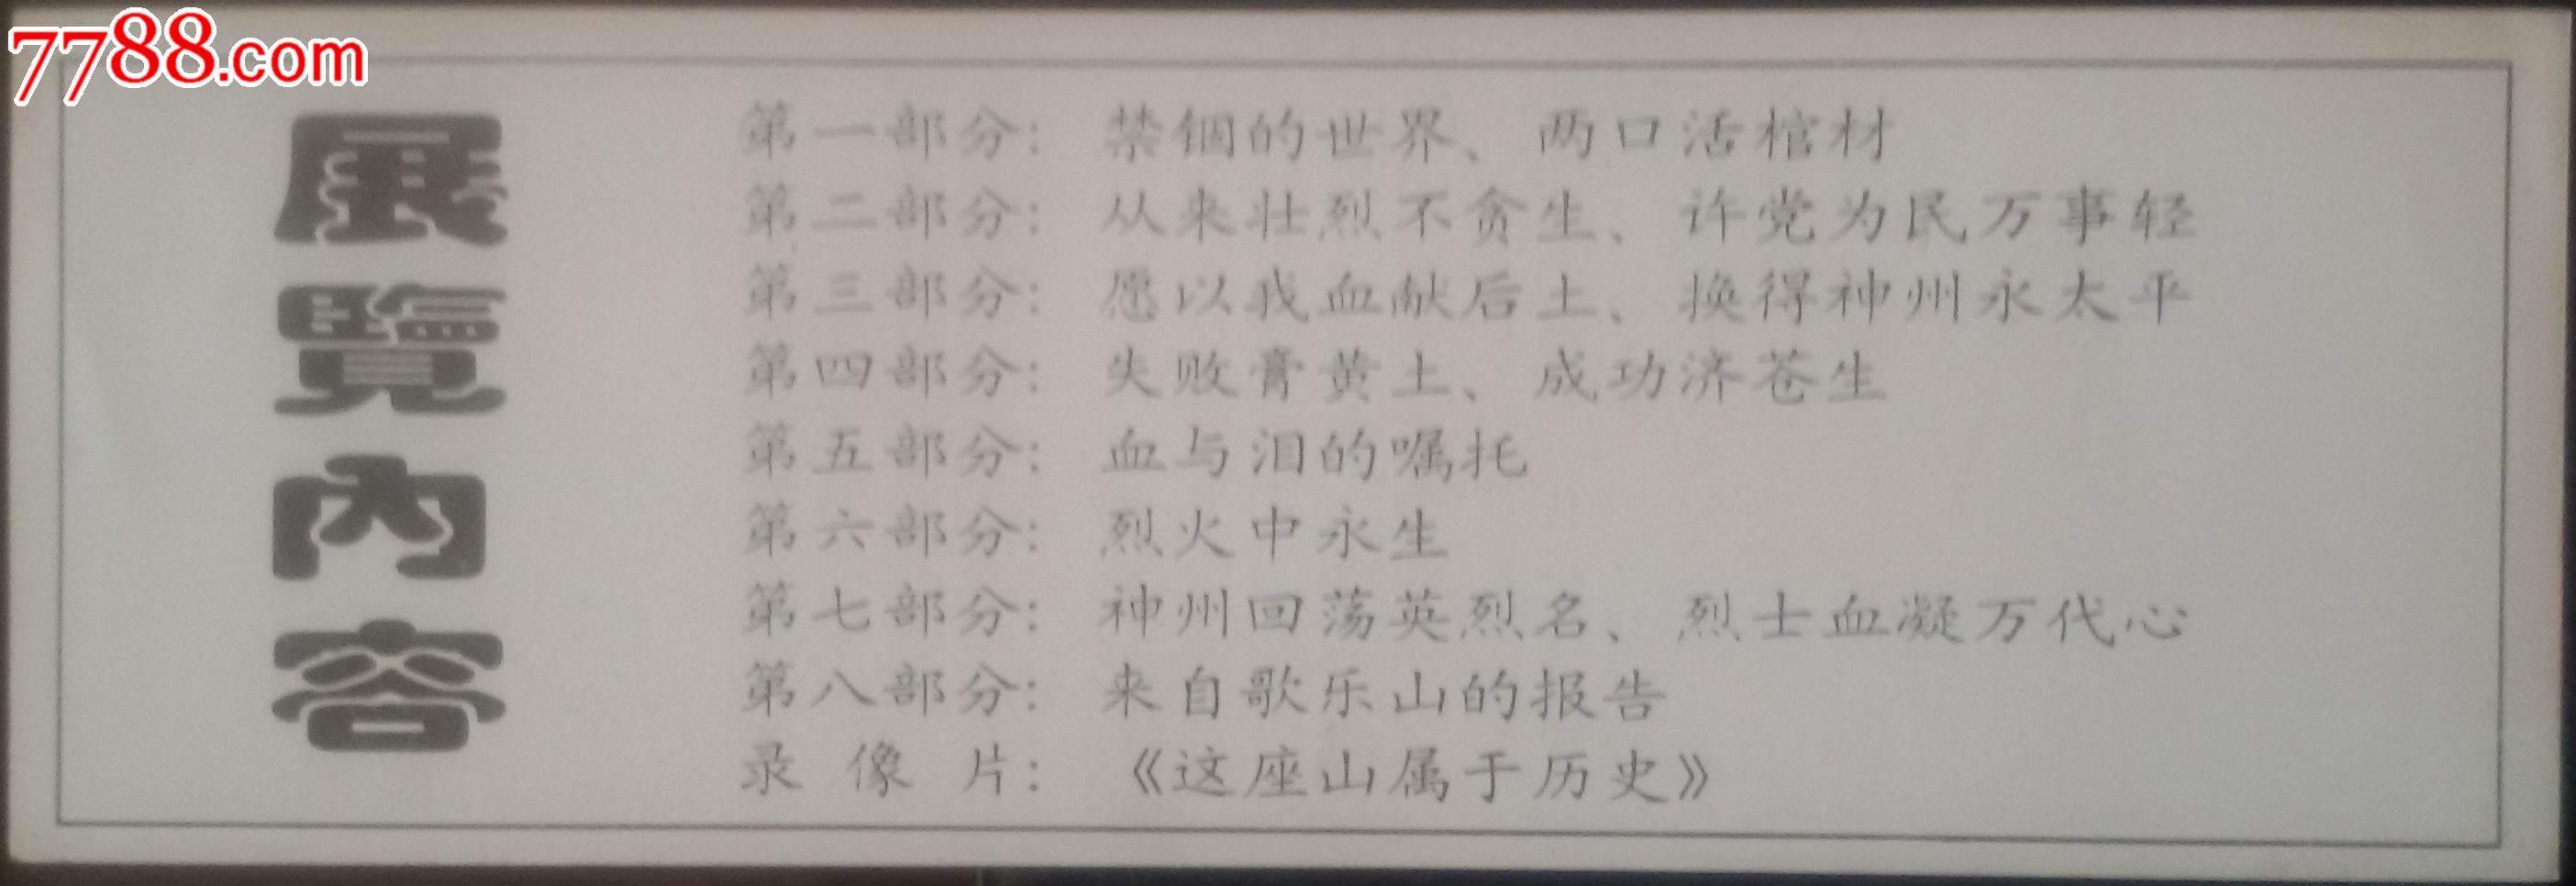 7788.com
展覽內容
第一部分：禁锢的世界、两口活棺材
第二部分：从来壮烈不贪生、许党为民万事轻
第三部分：愿以我血献后土、换得神州永太平
第四部分：失败膏黄土、成功济苍生
第五部分：血与泪的嘱托
第六部分：烈火中永生
第七部分：神州回荡英烈名、烈士血凝万代心
第八部分：来自歌乐山的报告
录像片：《这座山属于历史》